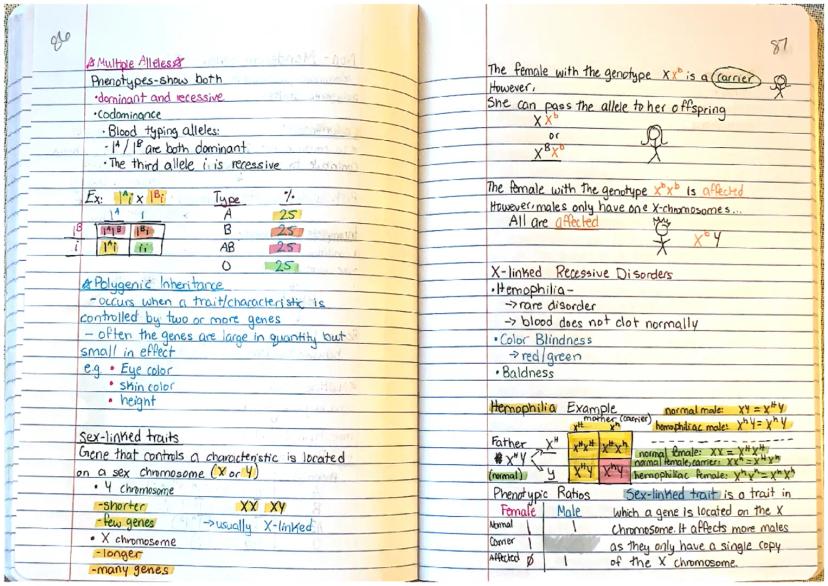 86
Multiple Alleles
Phenotypes-show both
• dominant and recessive
• Codominance
• Blood typing alleles:
- I^A / I^B are both dominant
• The third allele i is recessive
Ex: I^A i x I^B i
Type %
I^A i
A 25
I^B I^A I^B I^B i
B 25
i I^A i ii
AB 25
O 25
Polygenic Inheritance
- occurs when a trait/characteristic is
controlled by two or more genes
- often the genes are large in quantity but
small in effect
e.g. • Eye color
• skin color
• height
Sex-linked traits
Gene that controls a characteristic is located
on a sex chromosome (X or Y)
• Y chromosome
-shorter XX XY
-few genes → usually X-linked
• X chromosome
-longer
-many genes
87
The female with the genotype X X^b is a carrier
However,
She can pass the allele to her offspring
X X^b
or
X^B X^b
The female with the genotype X^b X^b is affected
However, males only have one X-chromosomes...
All are affected
X^b Y
X-linked Recessive Disorders
• Hemophilia-
→ rare disorder
→ blood does not clot normally
• Color Blindness
→ red/green
• Baldness
Hemophilia Example
normal male: XY = X^H Y
mother (carrier)
hemophiliac male: X^h Y = X^h Y
X^H X^h
Father X^H X^H X^H X^H X^h
X^H Y
normal female: XX = X^H X^H
normal female, carrier: XX^h = X^H X^h
(normal) Y X^H Y X^h Y
hemophiliac female: X^h X^h = X^h X^h
Phenotypic Ratios
Female Male
Normal 1 1
Carrier 1
Affected 0 1
Sex-linked trait is a trait in
which a gene is located on the X
Chromosome. It affects more males
as they only have a single copy
of the X chromosome.